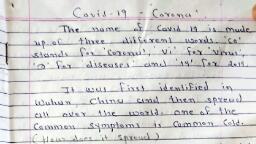 Covid-19 - 'Corona'.
The name of Covid 19 is made
up of three different words 'Co'
stands for 'Corona', 'Vi' for 'Virus',
'D' for diseases' and '19' for 2019.
It was first identified in
Wuhan, China and then spread
all over the world. one of the
Common Symptoms is Common Cold.
(How does it spread)